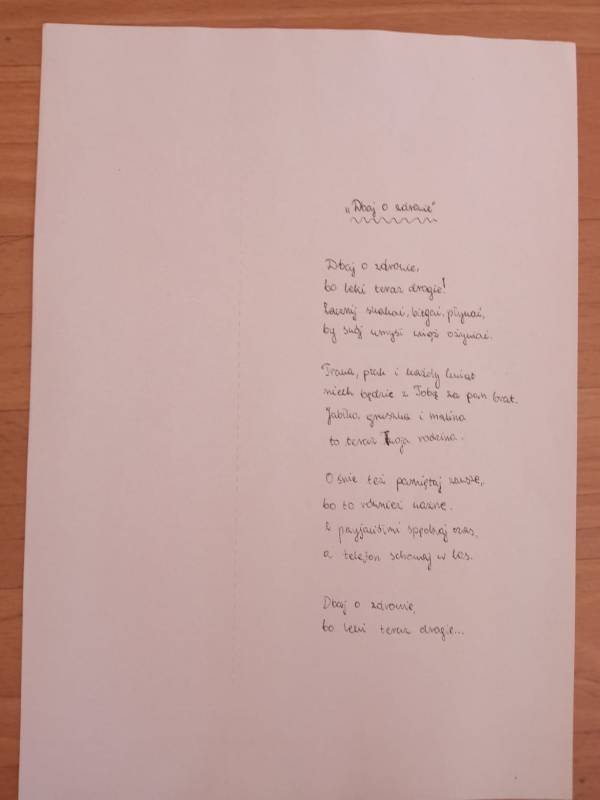 „Dbaj o zdrowie"
Dbaj o zdrowie,
bo leki teraz drogie!
Zacznij skakać, biegać, pływać,
by swój umysł wciąż ożywiać.
Trawa, ptak i każdy kwiat
niech będzie z Tobą za pan brat.
Jabłko, gruszka i malina
to teraz Twoja rodzina.
O śnie też pamiętaj zawsze,
bo to również ważne.
Z przyjaciółmi spędzaj czas,
a telefon schowaj w las.
Dbaj o zdrowie,
bo leki teraz drogie...